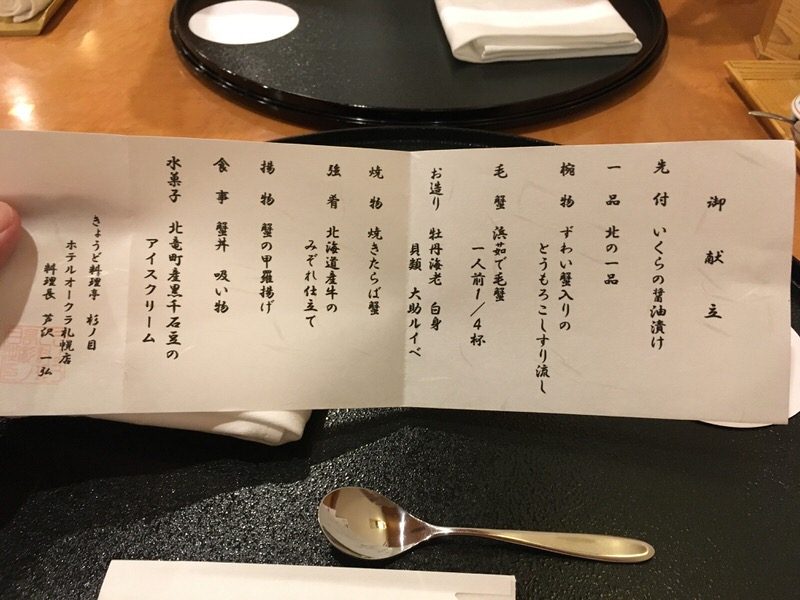 御献立
先付 いくらの醤油漬け
一品 北の一品
椀物 ずわい蟹入りの
とうもろこしすり流し
毛蟹 浜茹で毛蟹
一人前1/4杯
お造り 牡丹海老 白身
貝類 大助ルイベ
焼物 焼きたらば蟹
強肴 北海道産牛の
みぞれ仕立て
揚物 蟹の甲羅揚げ
食事 蟹丼 吸い物
水菓子 北竜町産黒千石豆の
アイスクリーム
きょうど料理亭 杉ノ目
ホテルオークラ札幌店
料理長 芦沢 一弘